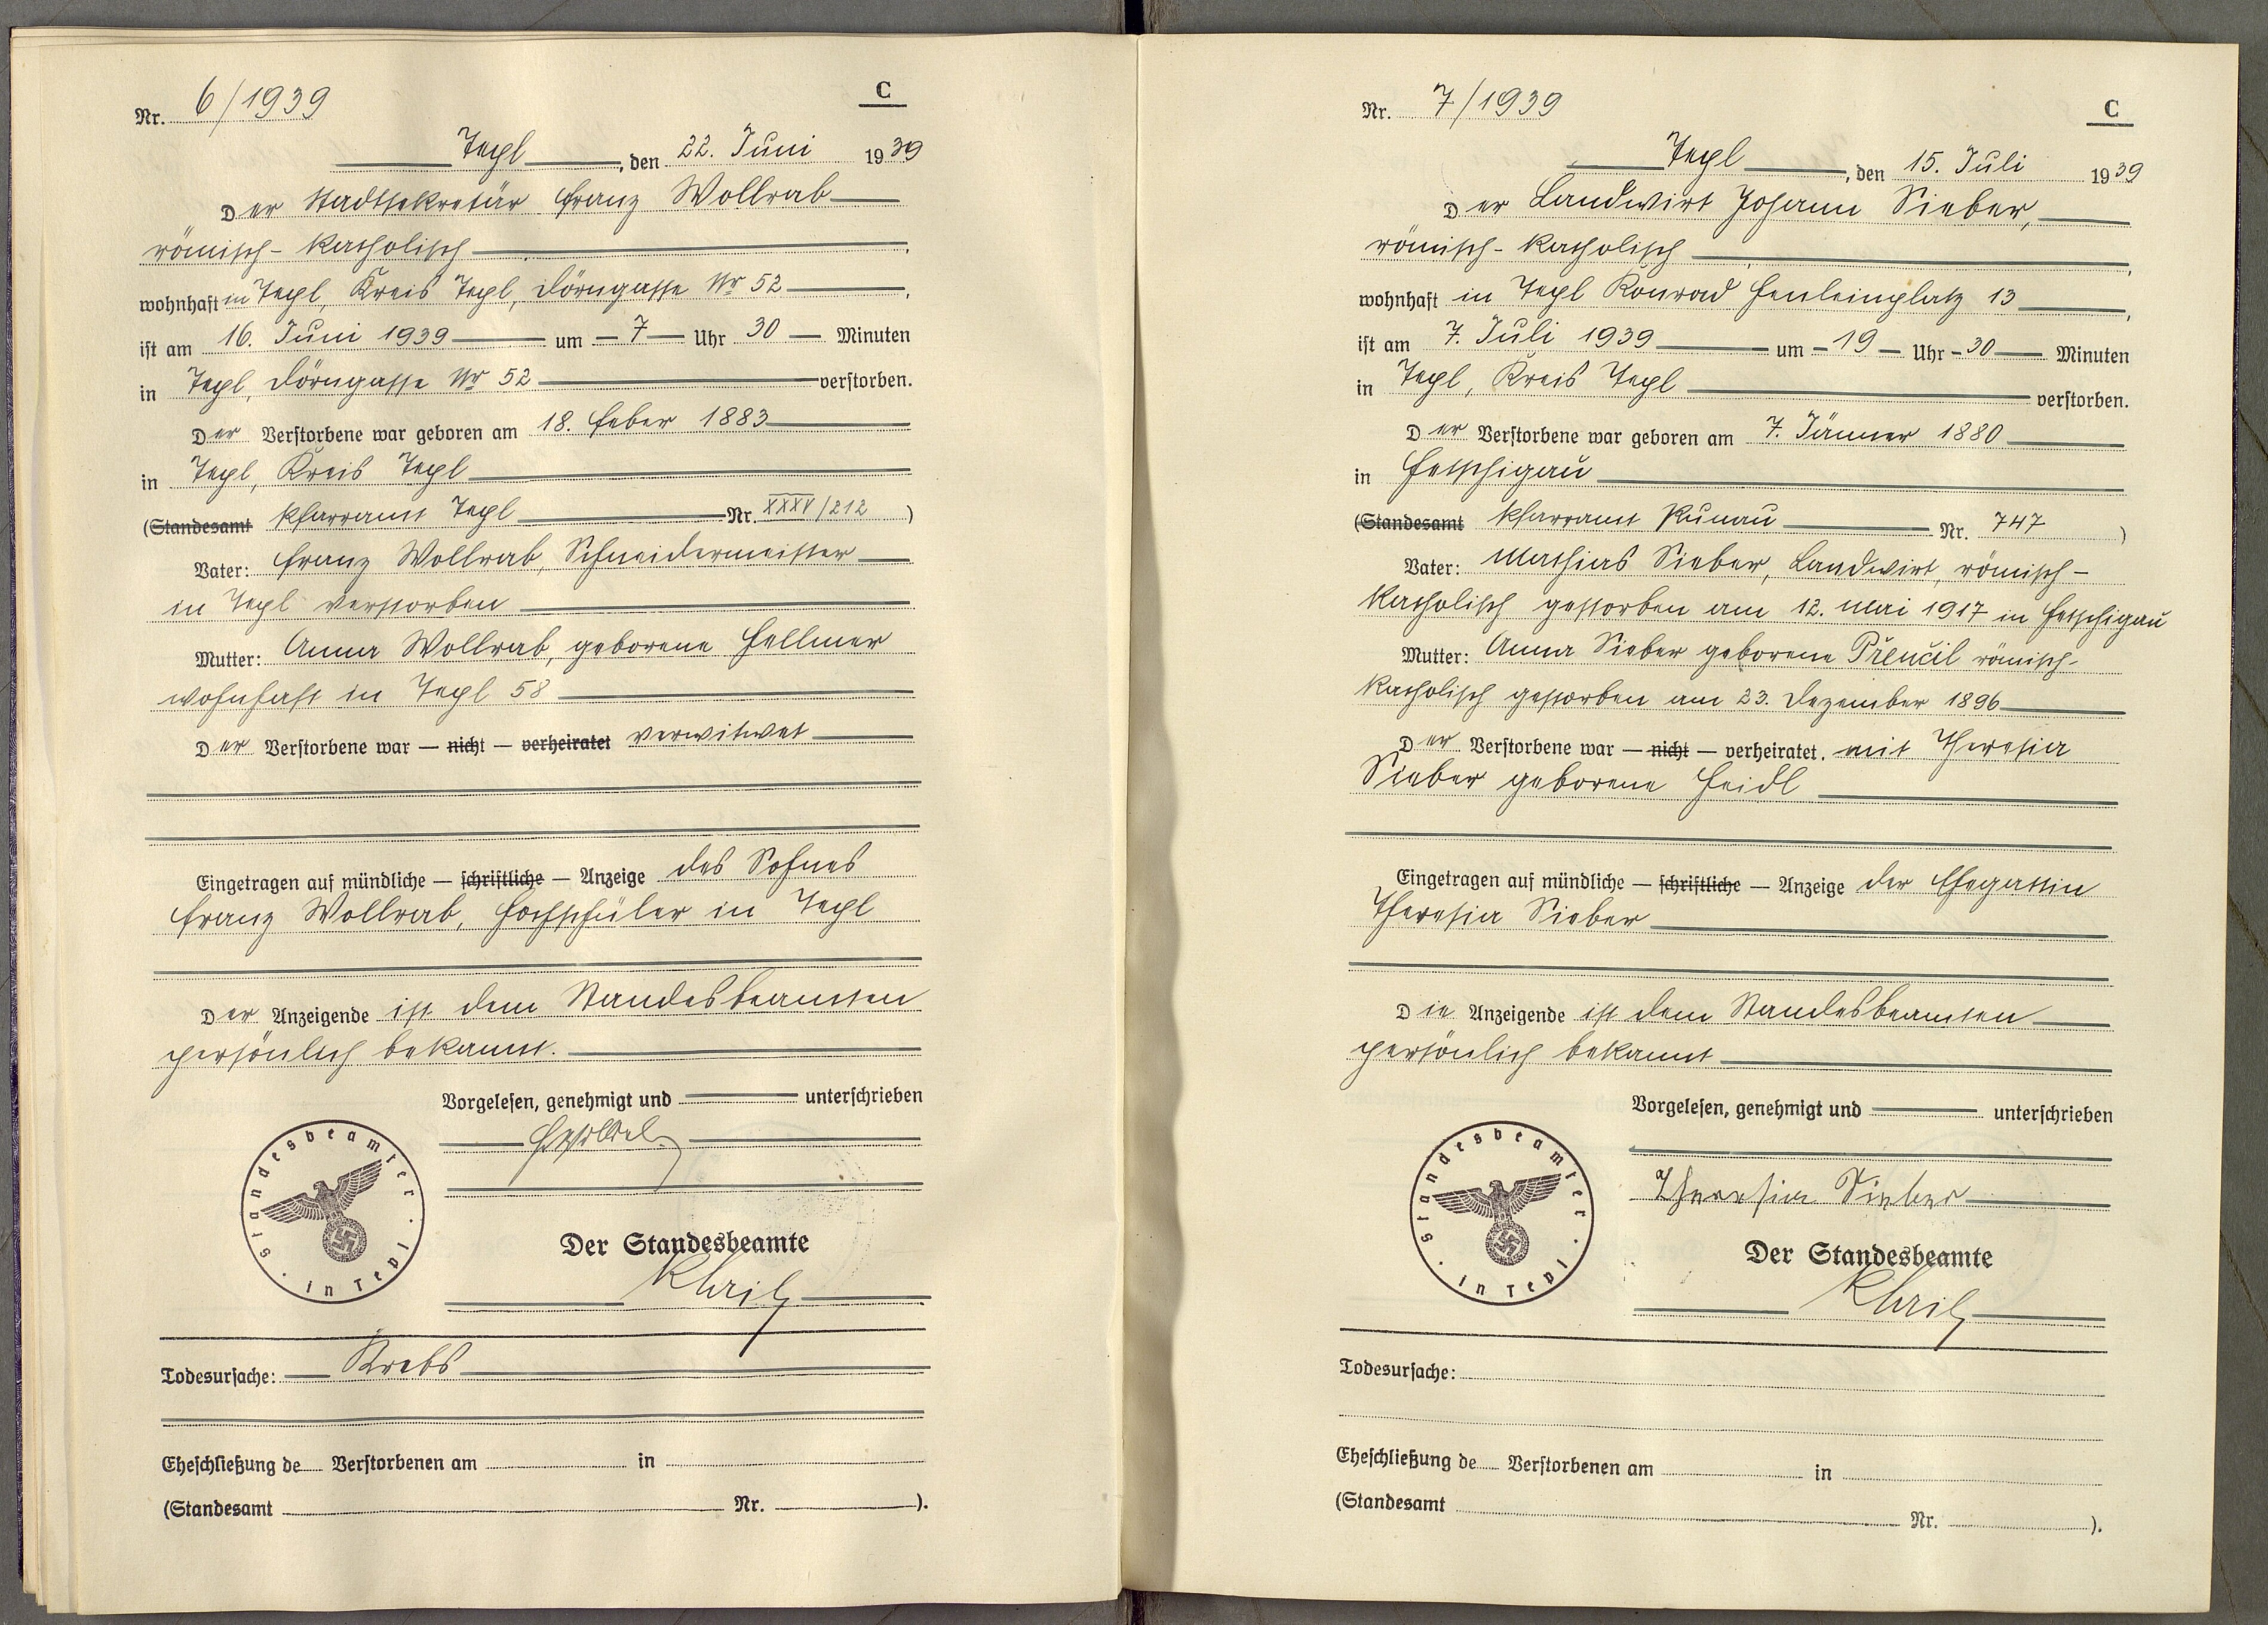 Nr. 6/1939
C
Tepl, den 22. Juni 1939
Der Stadtsekretär Franz Wollrab
römisch-katholisch,
wohnhaft in Tepl, Kreis Tepl, Dörngasse Nr 52,
ist am 16. Juni 1939 um 7 Uhr 30 Minuten
in Tepl, Dörngasse Nr 52 verstorben.
Der Verstorbene war geboren am 18. Feber 1883
in Tepl, Kreis Tepl
(Standesamt Pfarramt Tepl Nr. XXXV/212)
Vater: Franz Wollrab, Schneidermeister
in Tepl verstorben
Mutter: Anna Wollrab, geborene Hellmer
wohnhaft in Tepl 58
Der Verstorbene war — nicht — verheiratet verwitwet
Eingetragen auf mündliche — schriftliche — Anzeige des Sohnes
Franz Wollrab, Hochschüler in Tepl
Der Anzeigende ist dem Standesbeamten
persönlich bekannt.
Vorgelesen, genehmigt und unterschrieben
Standesbeamter in Tepl
Der Standesbeamte
Todesursache: Krebs
Eheschließung de Verstorbenen am in
(Standesamt Nr. ).
Nr. 7/1939
C
Tepl, den 15. Juli 1939
Der Landwirt Johann Sieber,
römisch-katholisch,
wohnhaft in Tepl Konrad Henleinplatz 13,
ist am 7. Juli 1939 um 19 Uhr 30 Minuten
in Tepl, Kreis Tepl verstorben.
Der Verstorbene war geboren am 7. Jänner 1880
in Hetschigau
(Standesamt Pfarramt Kunau Nr. 747)
Vater: Mathias Sieber, Landwirt, römisch-
katholisch gestorben am 12. Mai 1917 in Hetschigau
Mutter: Anna Sieber geborene Přeučil römisch-
katholisch gestorben am 23. Dezember 1896
Der Verstorbene war — nicht — verheiratet. mit Theresia
Sieber geborene Heidl
Eingetragen auf mündliche — schriftliche — Anzeige der Ehegattin
Theresia Sieber
Die Anzeigende ist dem Standesbeamten
persönlich bekannt
Vorgelesen, genehmigt und unterschrieben
Theresia Sieber
Standesbeamter in Tepl
Der Standesbeamte
Todesursache:
Eheschließung de Verstorbenen am in
(Standesamt Nr. ).